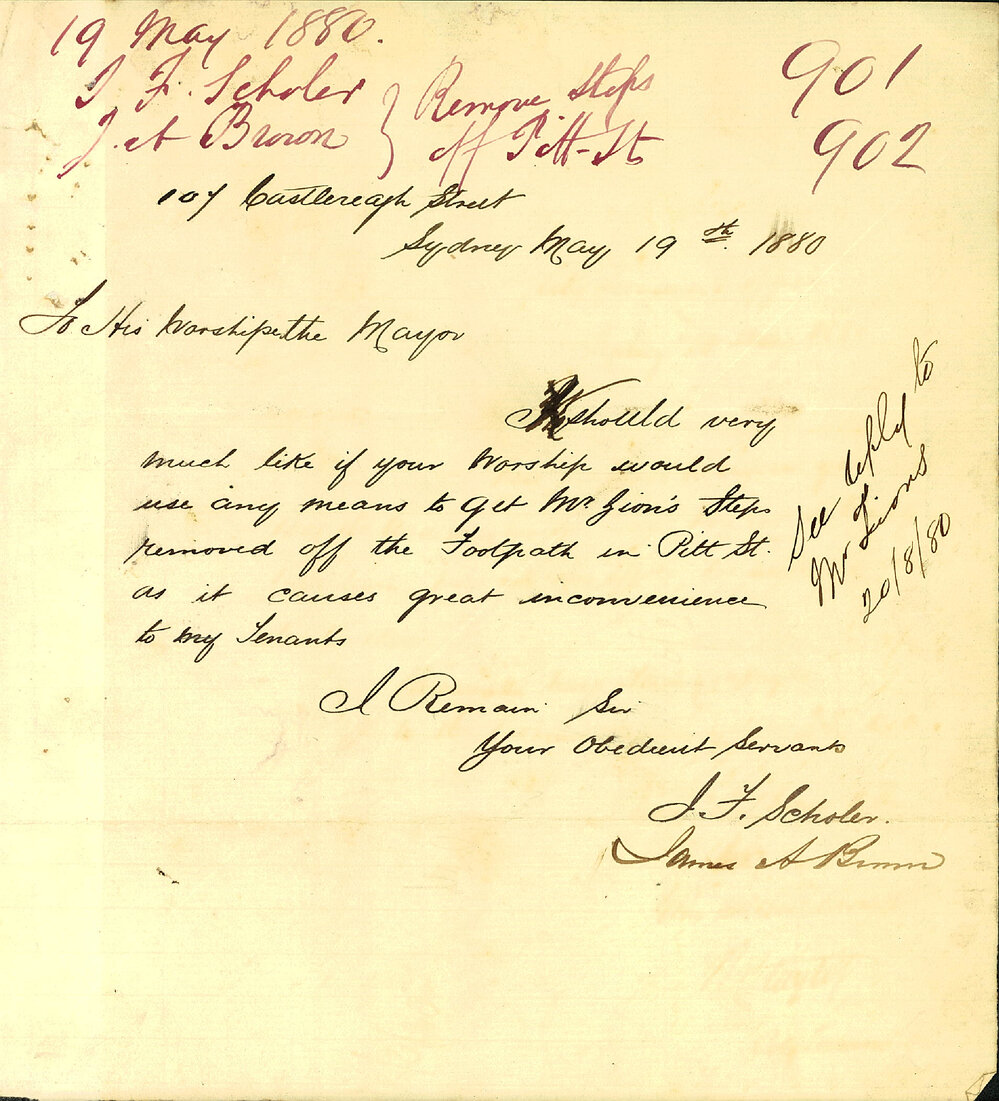 19 May 1880.
J. F. Scholer } Remove Steps 901
J. A Brown } off Pitt-St 902
107 Castlereagh Street
Sydney May 19th. 1880
To His Worship the Mayor
should very
much like if your Worship would
use any means to get Mr Lion's Steps
removed off the Footpath in Pitt St.
as it causes great inconvenience
to my Tenants
I Remain Sir
Your Obedient Servants
J. F. Scholer.
James A Brown
See reply to
Mr Lions
20/8/80